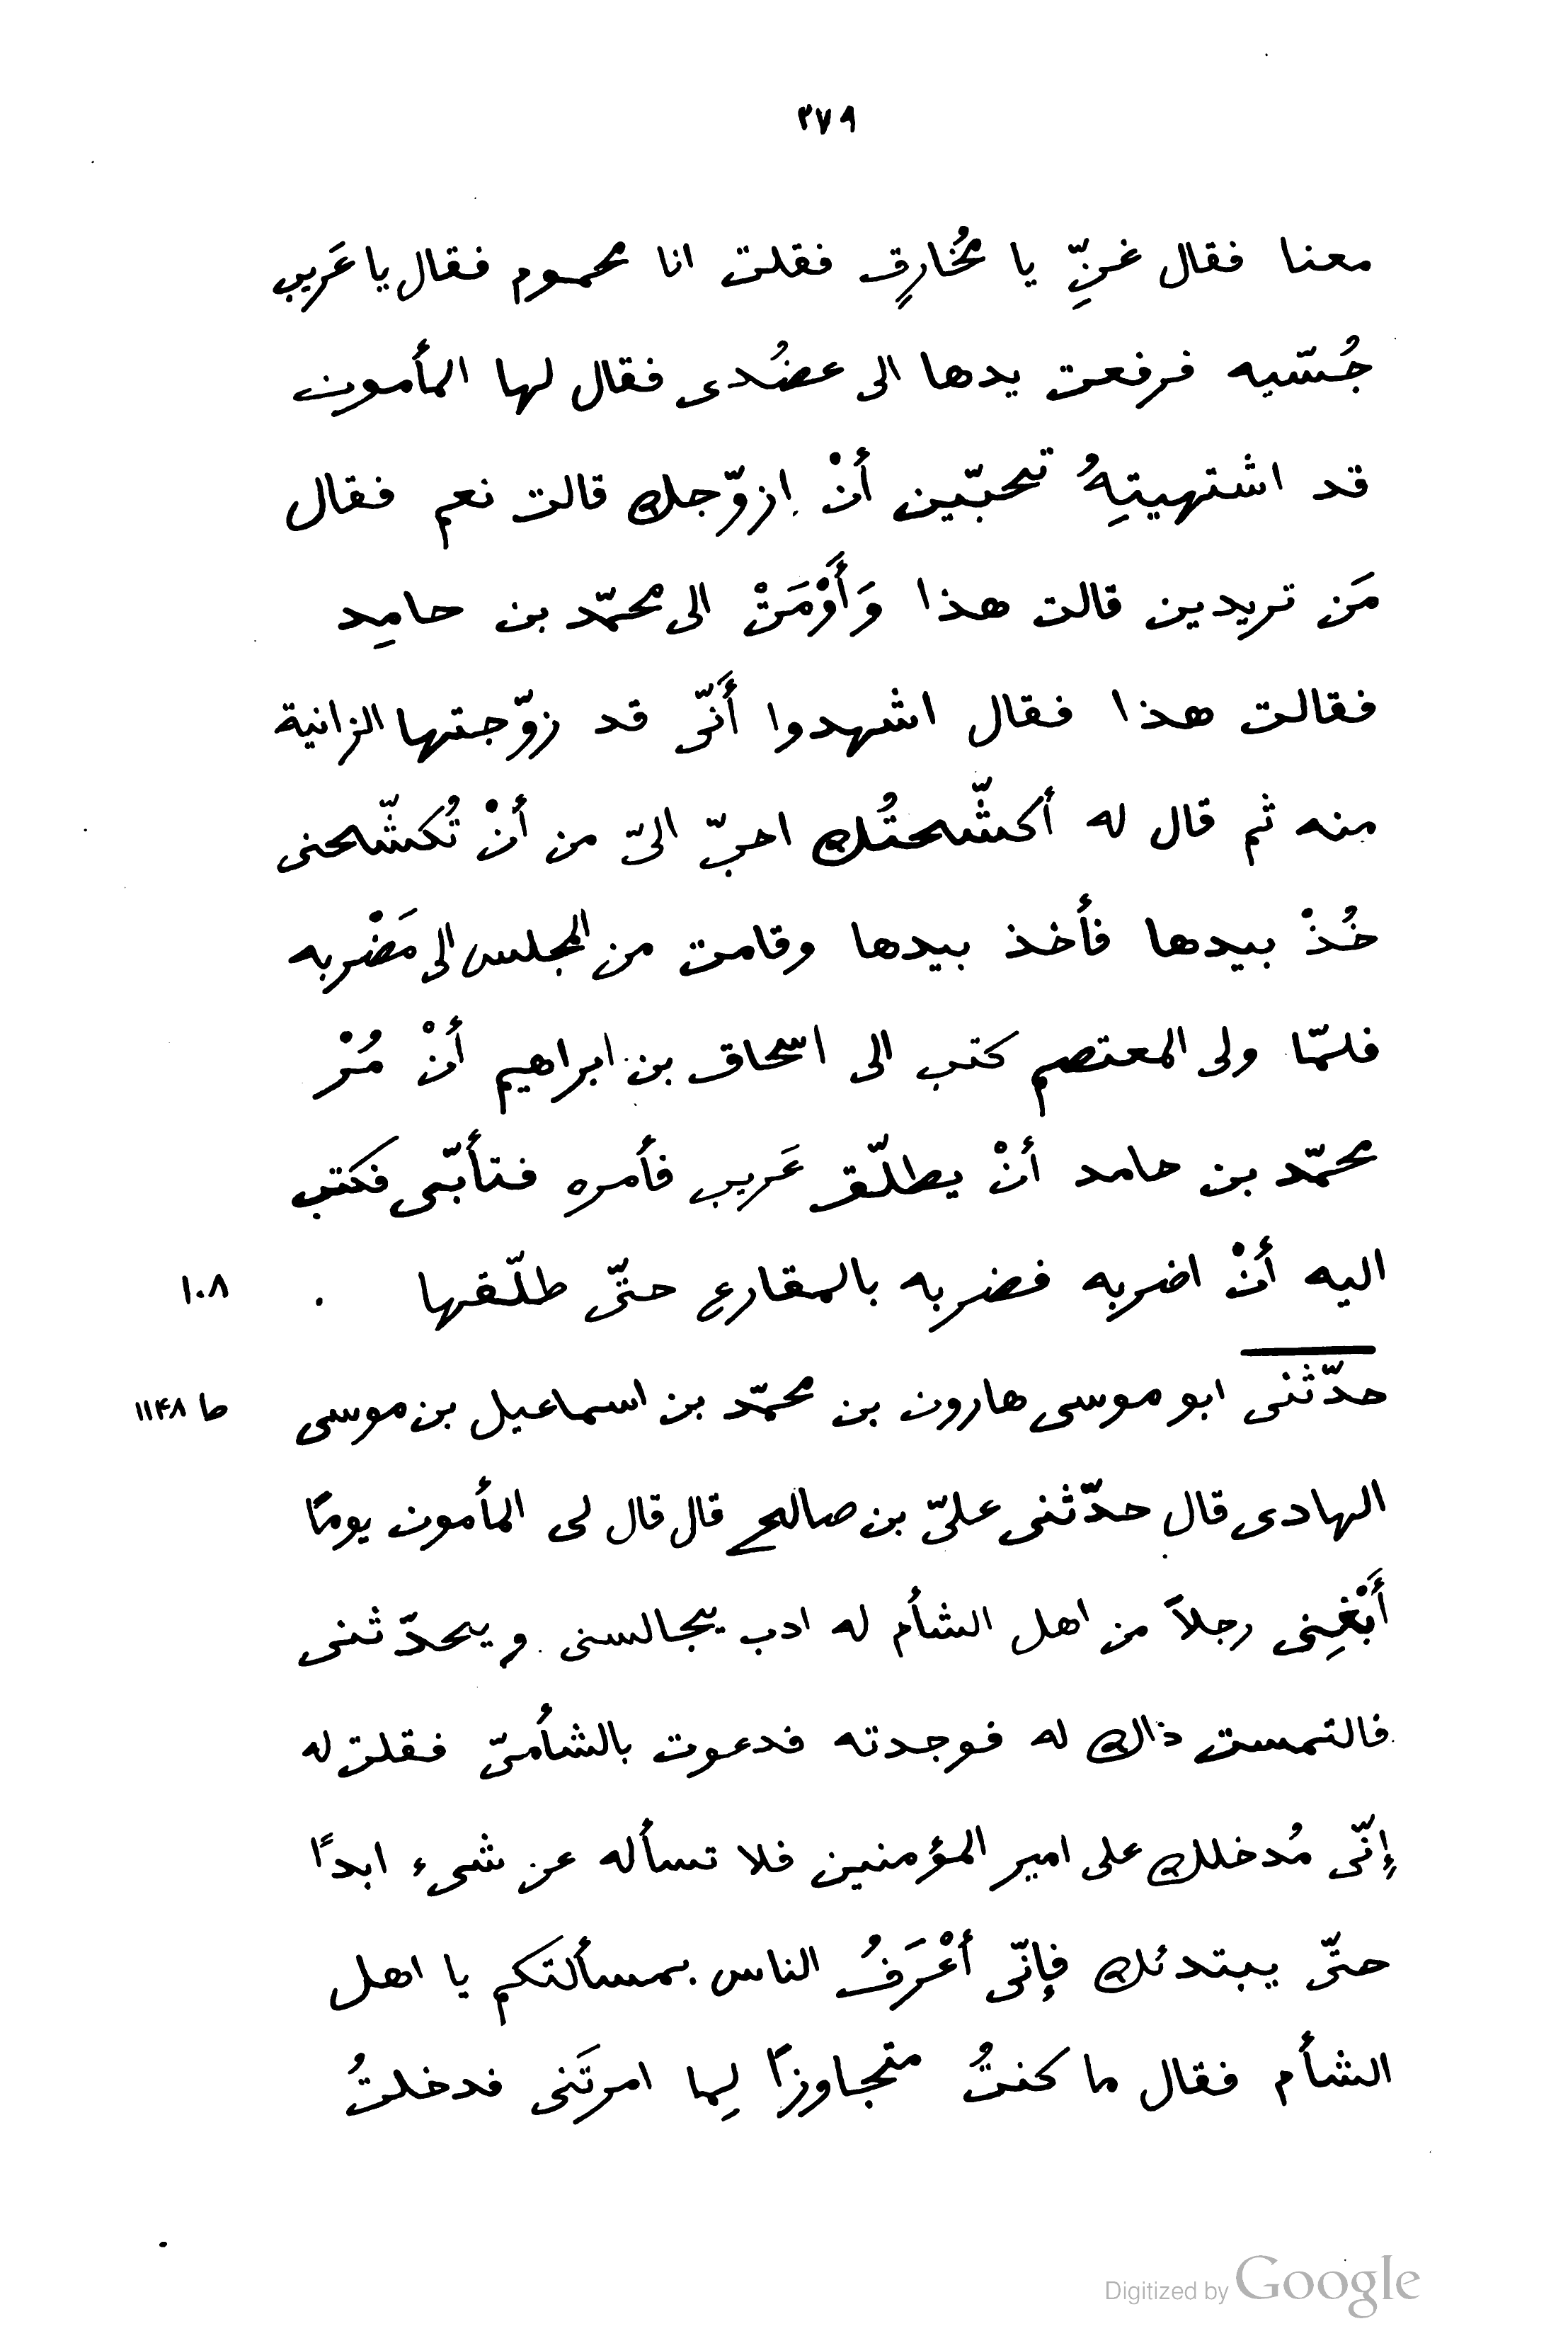 ٢٧٩
معنا فقال غَنِّ يا مُخارقِ فقلت انا محموم فقال يا عَريب
جُسّيه فرفعت يدها الى عضُدى فقال لها المأمون
قد اشتهيتِهُ تحبّين أنْ ازوّجك قالت نعم فقال
مَن تريدين قالت هذا وَأَوْمَتْ الى محمّد بن حامِد
فقالت هذا فقال اشهدوا أَنّى قد زوّجتها الزانية
منه ثم قال له أكشّحتُك احبّ الىّ من أنْ تُكشّحنى
خُذْ بيدها فأخذ بيدها وقامت من المجلس الى مَضْربه
فلمّا ولى المعتصم كتب الى اسحاق بن ابراهيم أنْ مُرْ
محمّد بن حامد أنْ يطلّق عَريب فأمره فتأبّى فكتب
اليه أنْ اضربه فضربه بالمقارع حتّى طلّقها ١٠٨
حدّثنى ابو موسى هارون بن محمّد بن اسماعيل بن موسى طا ١١۴٨
الهادى قال حدّثنى علىّ بن صالح قال قال لى المأمون يومًا
أَبْغِنى رجلاً من اهل الشأم له ادب يجالسنى ويحدّثنى
فالتمست ذاك له فوجدته فدعوت بالشأمىّ فقلت له
إِنّى مُدخلك على امير المؤمنين فلا تسأله عن شىء ابدًا
حتّى يبتدئك فإنّى أَعْرَفُ الناس بمسألتكم يا اهل
الشأم فقال ما كنتُ متجاوزًا لِما امرتَنى فدخلتُ
Digitized by Google